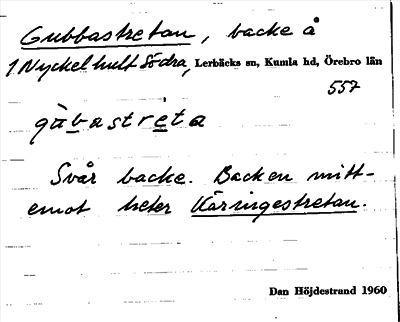 Gubbastretan, backe å
1 Nyckelhult Södra, Lerbäcks sn, Kumla hd, Örebro län
557
gùbastrèta
Svår backe. Backen mitt-
emot heter Käringestretan.
Dan Höjdestrand 1960